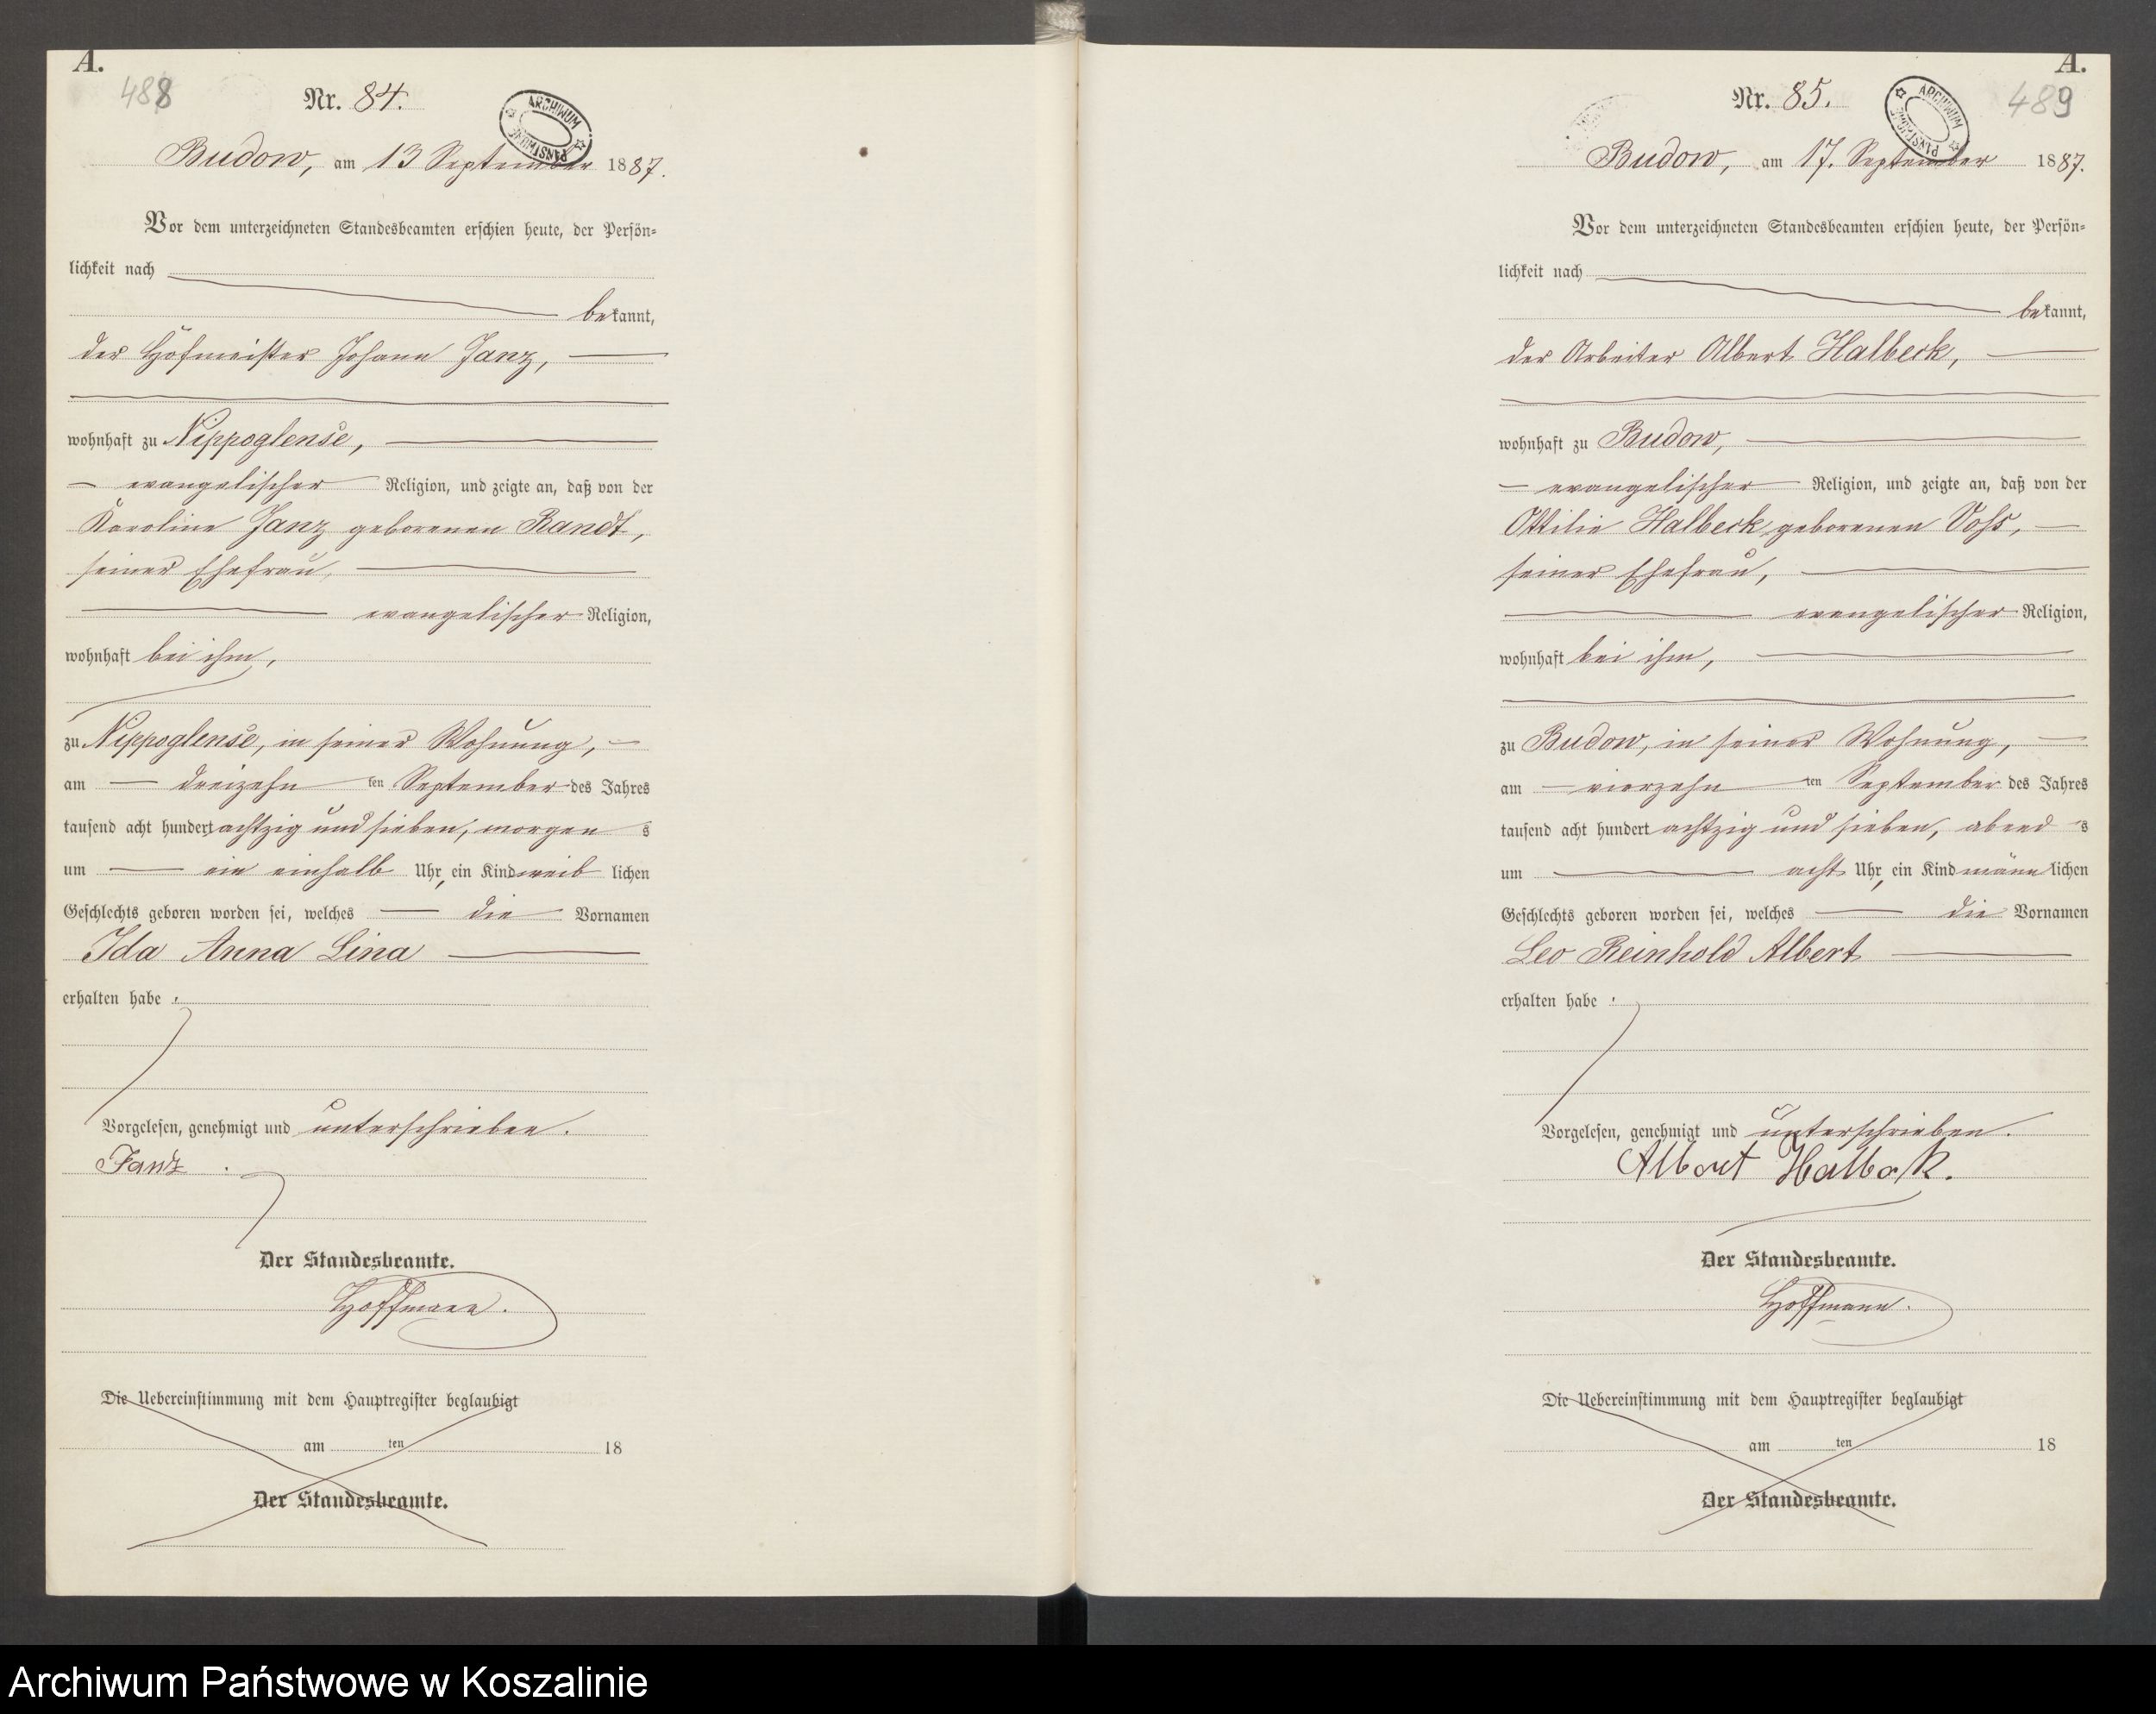 A.
488
Nr. 84.
ARCHIWUM PAŃSTWOWE
Budow, am 13 September 1887.
Vor dem unterzeichneten Standesbeamten erschien heute, der Persön-
lichkeit nach
bekannt,
der Hofmeister Johann Janz,
wohnhaft zu Nippoglense,
evangelischer Religion, und zeigte an, daß von der
Karoline Janz geborenen Bandt,
seiner Ehefrau,
evangelischer Religion,
wohnhaft bei ihm,
zu Nippoglense, in seiner Wohnung,
am dreizehn ten September des Jahres
tausend acht hundert achtzig und sieben, morgens
um ein einhalb Uhr, ein Kind weiblichen
Geschlechts geboren worden sei, welches die Vornamen
Ida Anna Lina
erhalten habe.
Vorgelesen, genehmigt und unterschrieben.
Janz.
Der Standesbeamte.
Hoffmann.
Die Uebereinstimmung mit dem Hauptregister beglaubigt
am ten 18
Der Standesbeamte.
A.
489
Nr. 85.
ARCHIWUM PAŃSTWOWE
Budow, am 17. September 1887.
Vor dem unterzeichneten Standesbeamten erschien heute, der Persön-
lichkeit nach
bekannt,
der Arbeiter Albert Halbeck,
wohnhaft zu Budow,
evangelischer Religion, und zeigte an, daß von der
Ottilie Halbeck geborenen Voss,
seiner Ehefrau,
evangelischer Religion,
wohnhaft bei ihm,
zu Budow, in seiner Wohnung,
am vierzehn ten September des Jahres
tausend acht hundert achtzig und sieben, abends
um acht Uhr, ein Kind männlichen
Geschlechts geboren worden sei, welches die Vornamen
Leo Reinhold Albert
erhalten habe.
Vorgelesen, genehmigt und unterschrieben.
Albert Halbek.
Der Standesbeamte.
Hoffmann.
Die Uebereinstimmung mit dem Hauptregister beglaubigt
am ten 18
Der Standesbeamte.
Archiwum Państwowe w Koszalinie